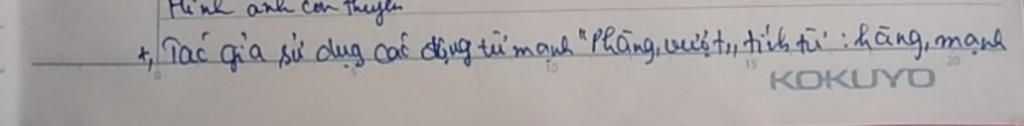 Hình ảnh con thuyền
+, Tác giả sử dụg các động từ mạnh "Phăng, vượt,, tích từ : hăng, mạnh
5 10 15 20
KOKUYO